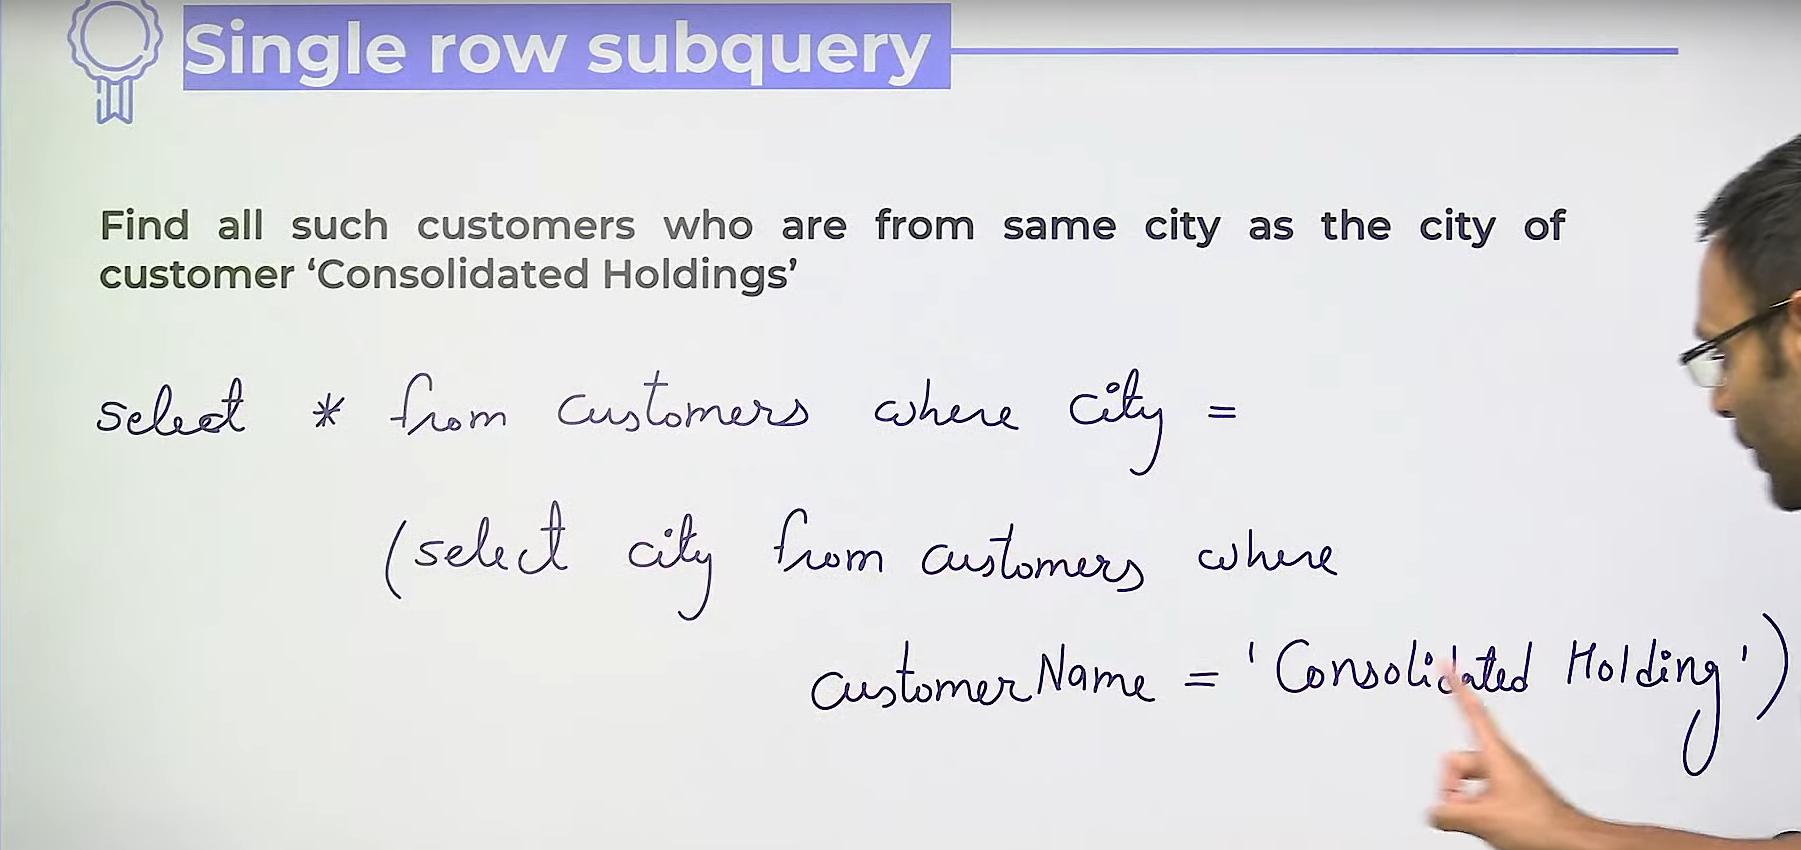 Single row subquery
Find all such customers who are from same city as the city of
customer ‘Consolidated Holdings’
select * from customers where city =
(select city from customers where
customerName = 'Consolidated Holding')